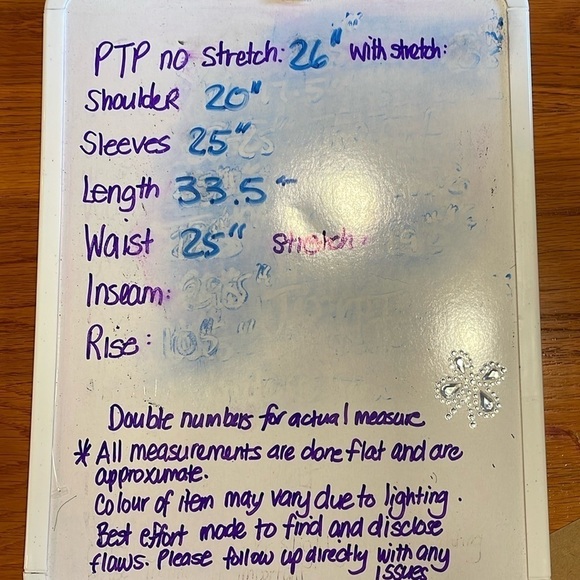 PTP no Stretch: 26" with stretch:
Shoulder 20"
Sleeves 25"
Length 33.5"
Waist 25" stretch:
Inseam:
Rise:
Double numbers for actual measure
* All measurements are done flat and are
approximate.
Colour of item may vary due to lighting.
Best effort made to find and disclose
flaws. Please follow up directly with any
issues